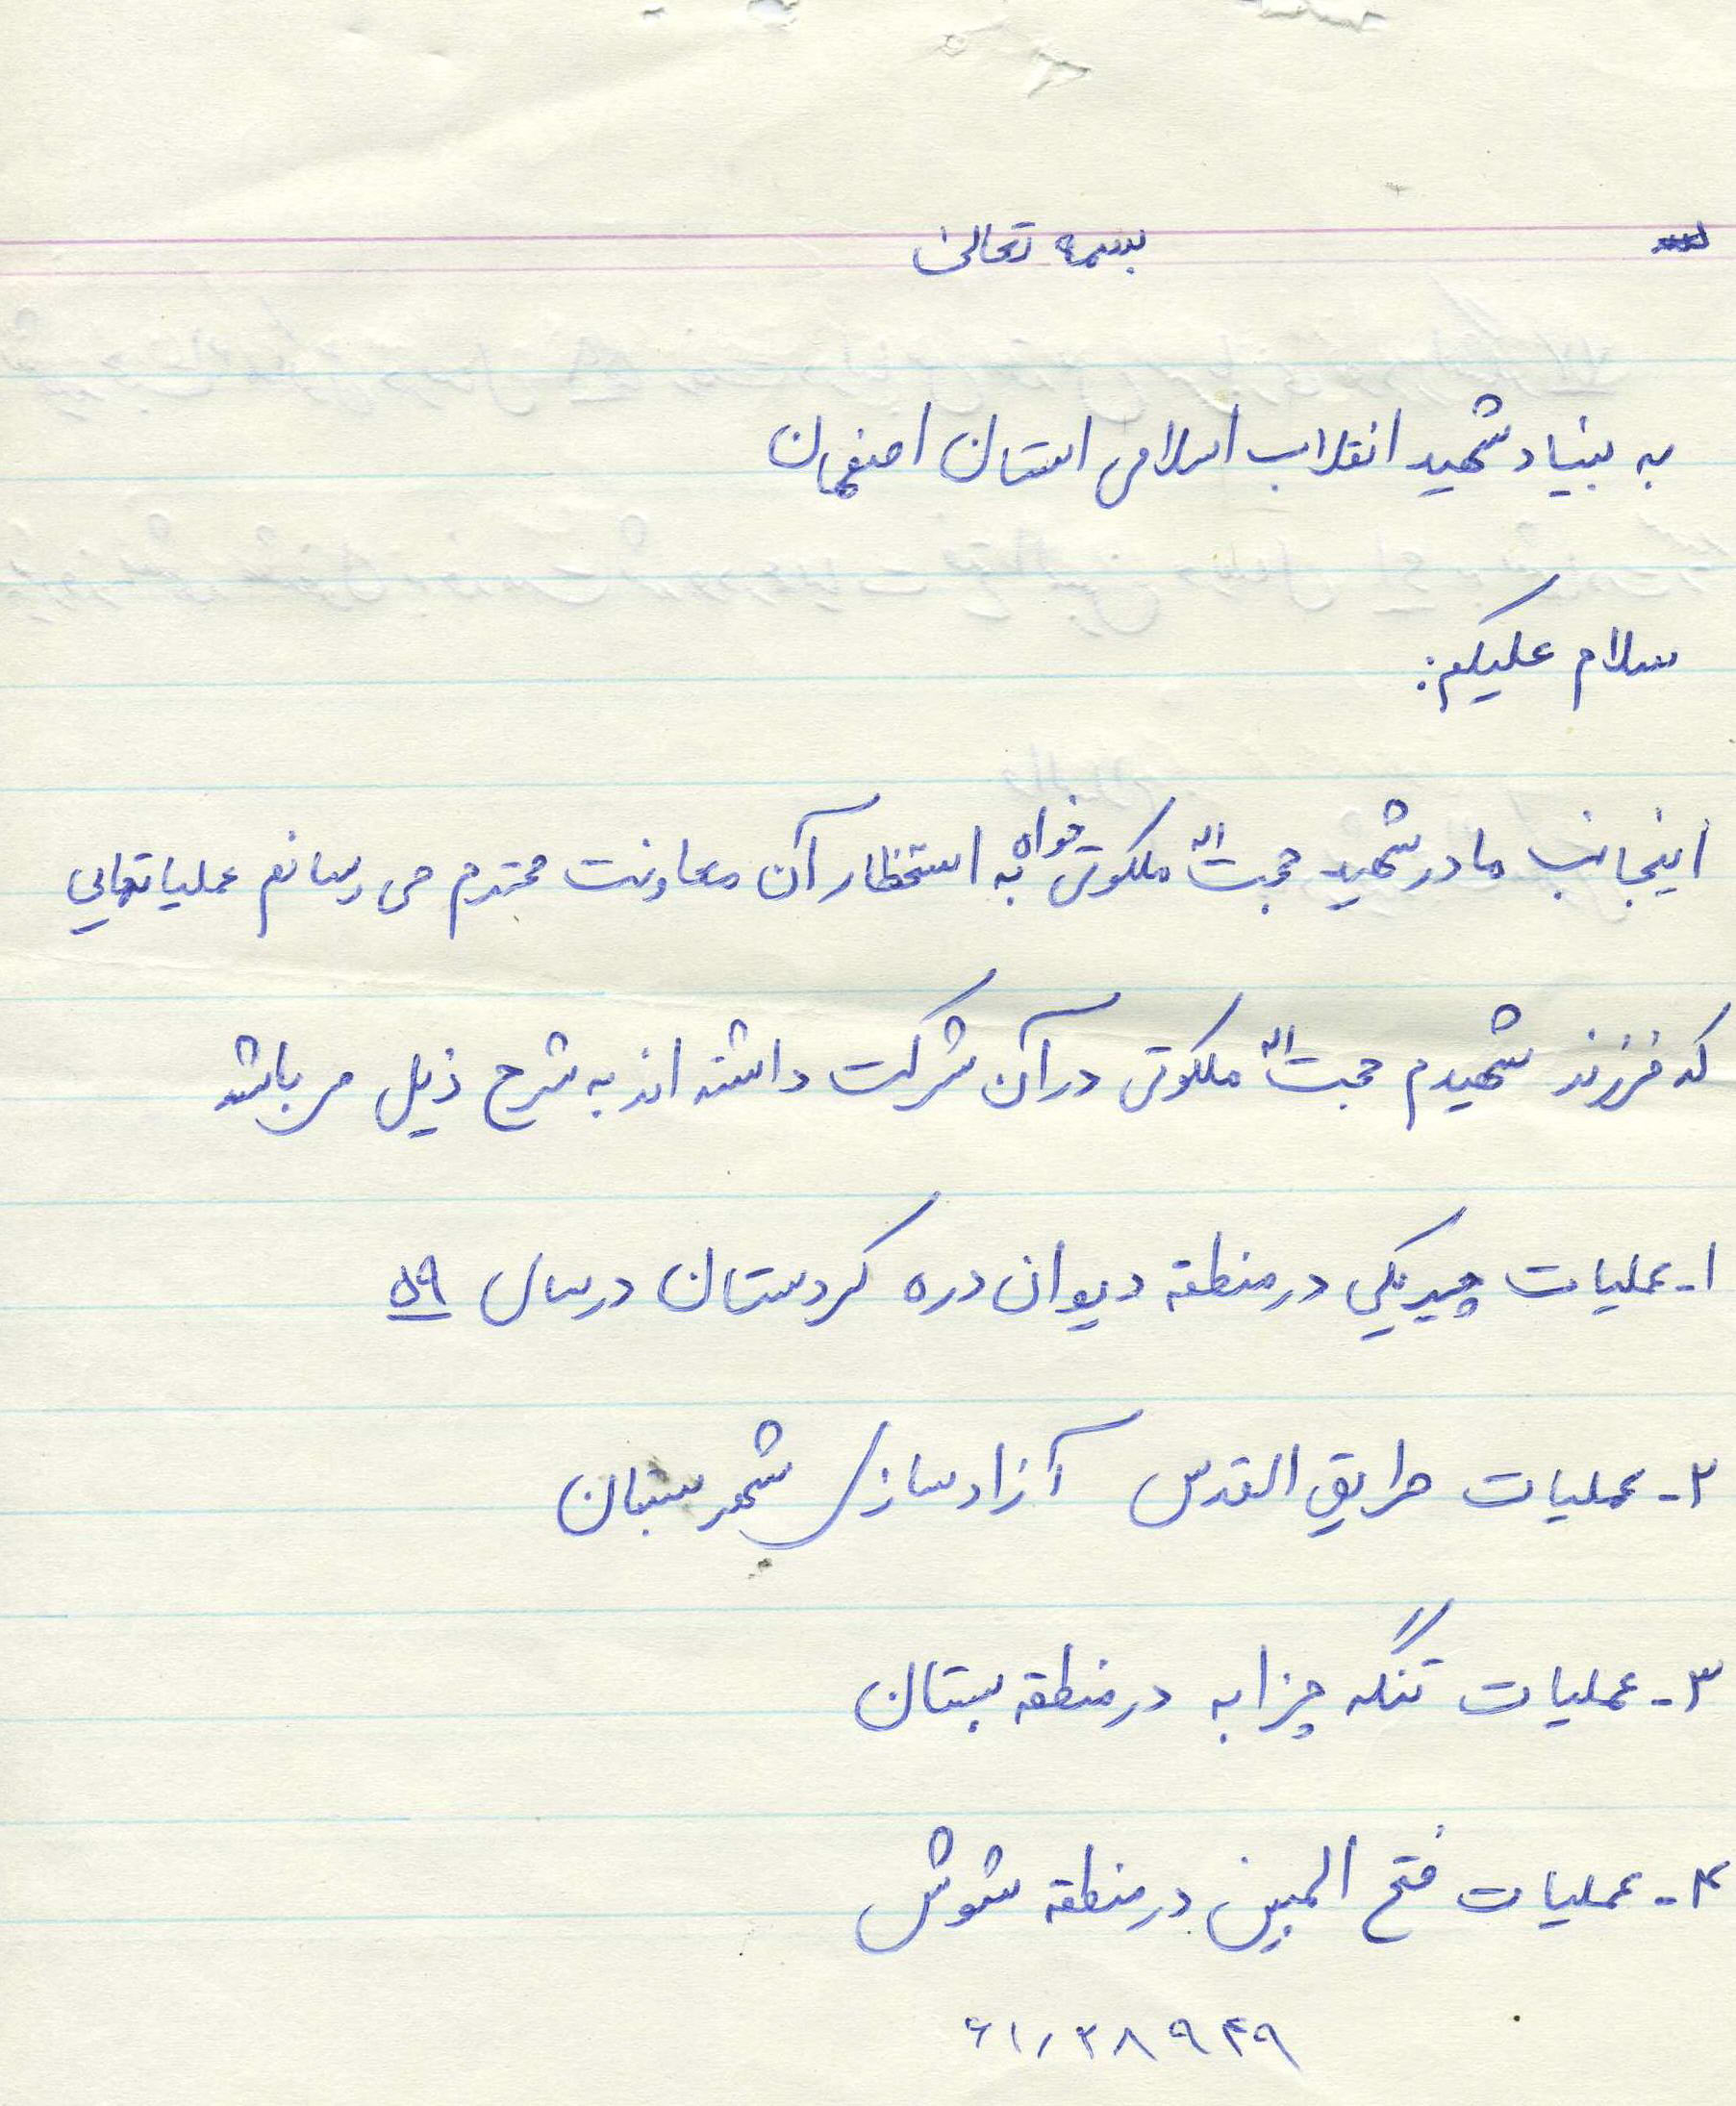 بسمه تعالی
به بنیاد شهید انقلاب اسلامی استان اصفهان
سلام علیکم:
اینجانب مادر شهید حجت الله ملکوتی خواه به استحظار آن معاونت محترم می رسانم عملیاتهایی
که فرزند شهیدم حجت الله ملکوتی در آن شرکت داشته اند به شرح ذیل می باشد
۱- عملیات چیریکی در منطقه دیوان دره کردستان در سال ۵۹
۲- عملیات طریق القدس آزادسازی شهر بستان
۳- عملیات تنگه چزابه در منطقه بستان
۴- عملیات فتح المبین در منطقه شوش
۶۱/۳۸۹۴۹